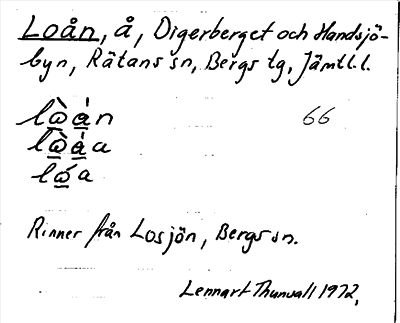 Loån, å, Digerberget och Handsjö-
byn, Rätans sn, Bergs tg, Jämtl.l.
lὼ̲ȧ̲n 66
lὼ̲ȧ̲a
lώ̲a
Rinner från Losjön, Bergs sn.
Lennart Thunvall 1972,